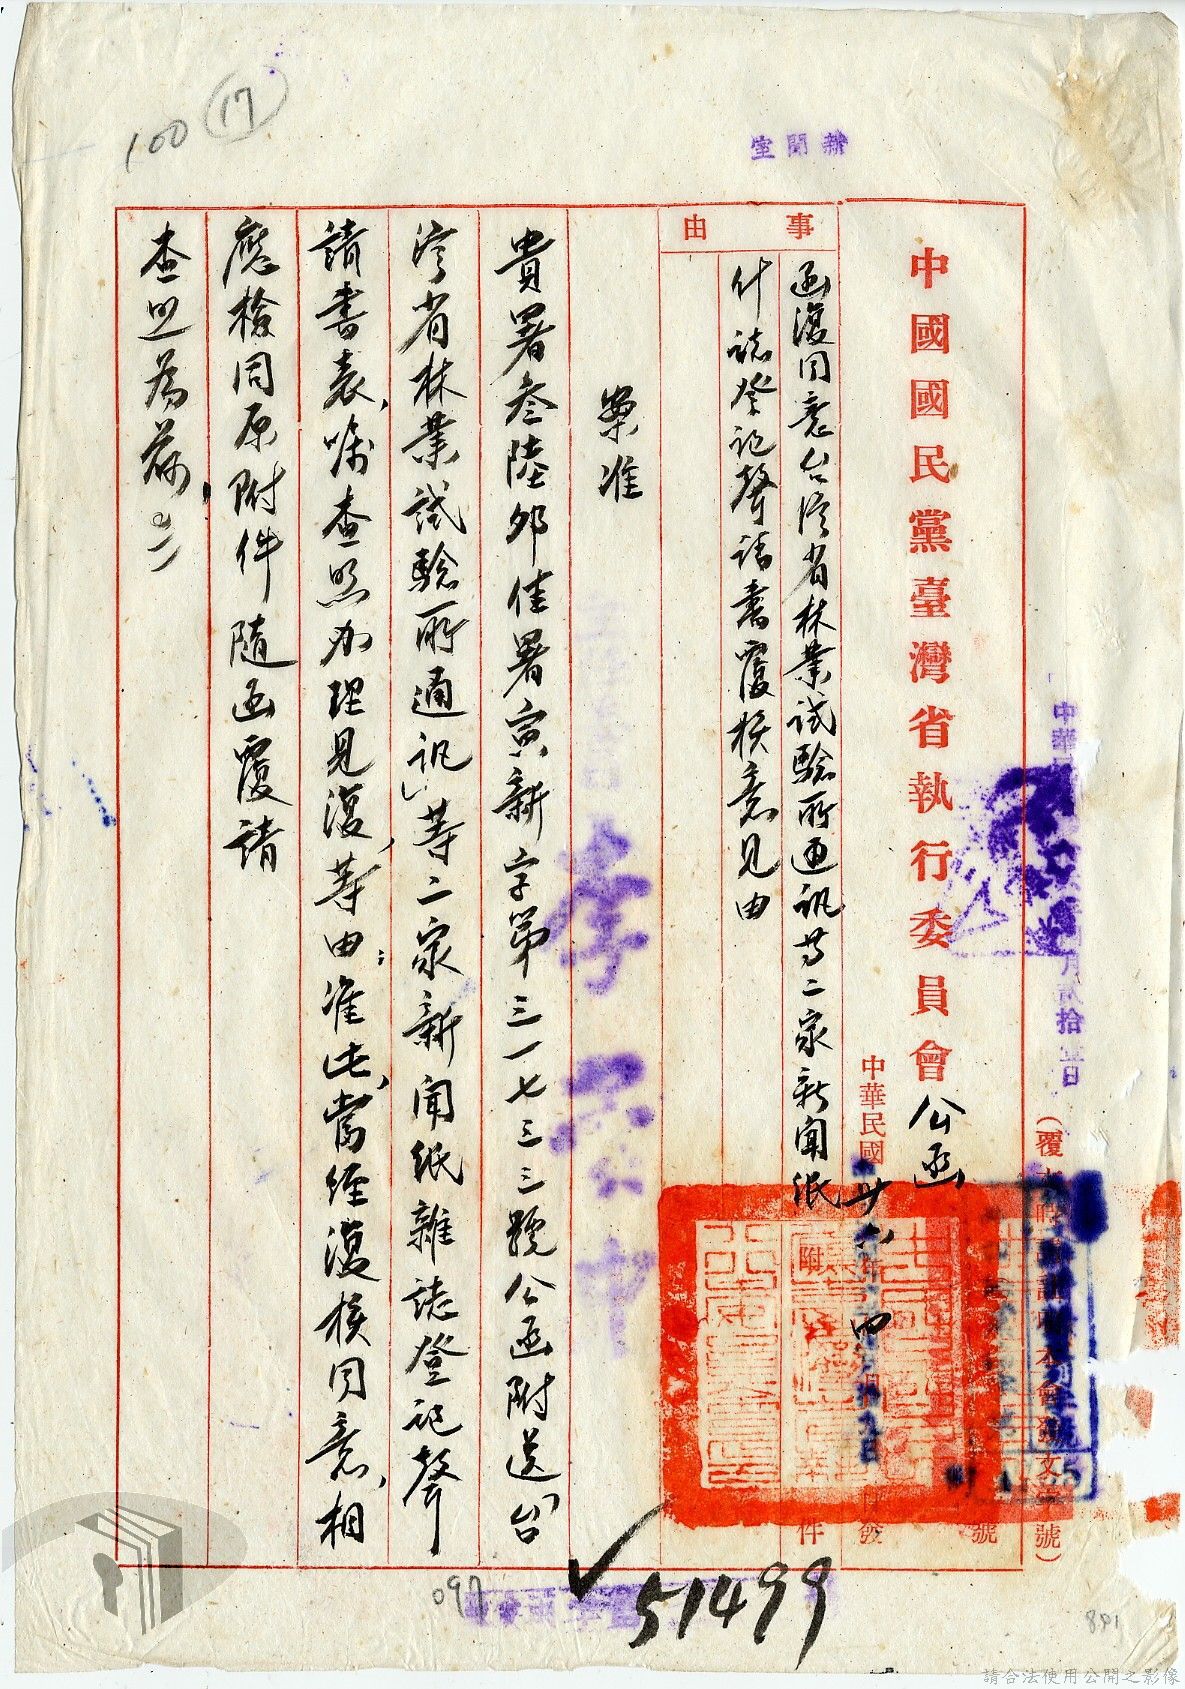 100 17
新聞室
中國國民黨臺灣省執行委員會公函
中華民國卅六年四月
事由
函復同意台湾省林業試驗所通訊等二家新聞紙
什誌登記聲請書覆核意見由
附件
案准
貴署叁陸卯佳署寅新字第三一七三三號公函附送「台
湾省林業試驗所通訊」等二家新聞紙雜誌登記聲
請書表，嘱查照办理見復，等由；准此，當經復核同意，相
應檢同原附件隨函覆請
查照為荷。
51499
097
891
請合法使用公開之影像